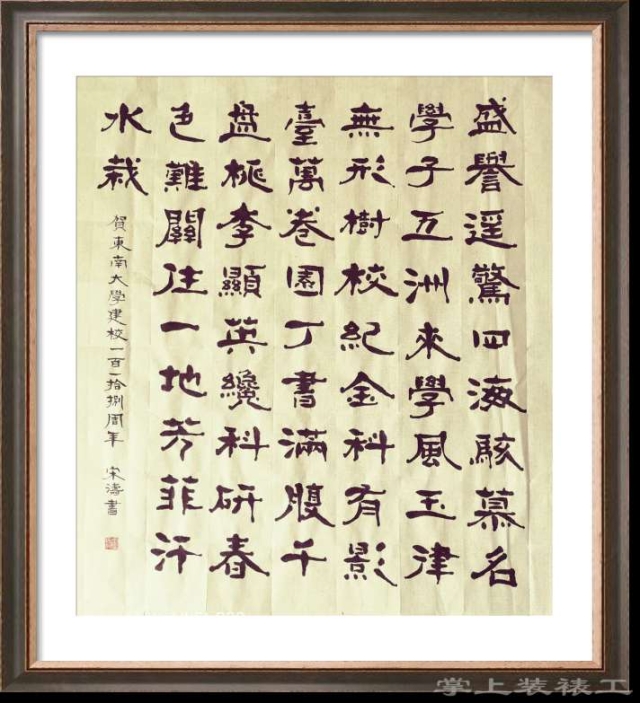 盛譽遥驚四海駭慕名
學子五洲來學風玉律
無形樹校紀金科有影
臺萬卷園丁書滿腹千
盘桃李顯英纔科研春
色難關住一地芳菲汗
水栽
賀東南大學建校一百一拾捌周年 宋濤書
掌上装裱工